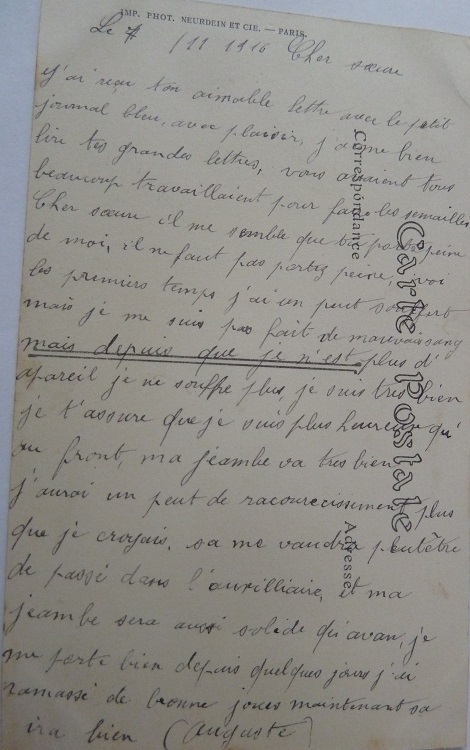 IMP. PHOT. NEURDEIN ET CIE. — PARIS.
Le 7/11 1916 Cher sœur
j'ai reçu ton aimable lettre avec le petit
journal bleu, avec plaisir, j'aime bien
lire tes grandes lettres, vous avaient tous
beaucoup travaillaient pour faire les semailles
Cher sœur il me semble que tu porte peine
de moi, il ne faut pas portez peine, moi
les premiers temps j'ai un peut souffert
mais je me suis pas fait de mauvais sang
mais depuis que je n'est plus d'
apareil je ne souffre plus, je suis tres bien
je t'assure que je suis plus heureux qu'
au front, ma jeambe va tres bien
j'aurai un peut de racourecissement plus
que je croyais. sa me vaudra peutêtre
de passé dans l'auxilliaire, et ma
jeambe sera aussi solide qu'avan, je
me porte bien depuis quelques jours j'ai
ramassé de bonne joues maintenant sa
ira bien (Auguste)
Carte postale
Correspondance
Adresse